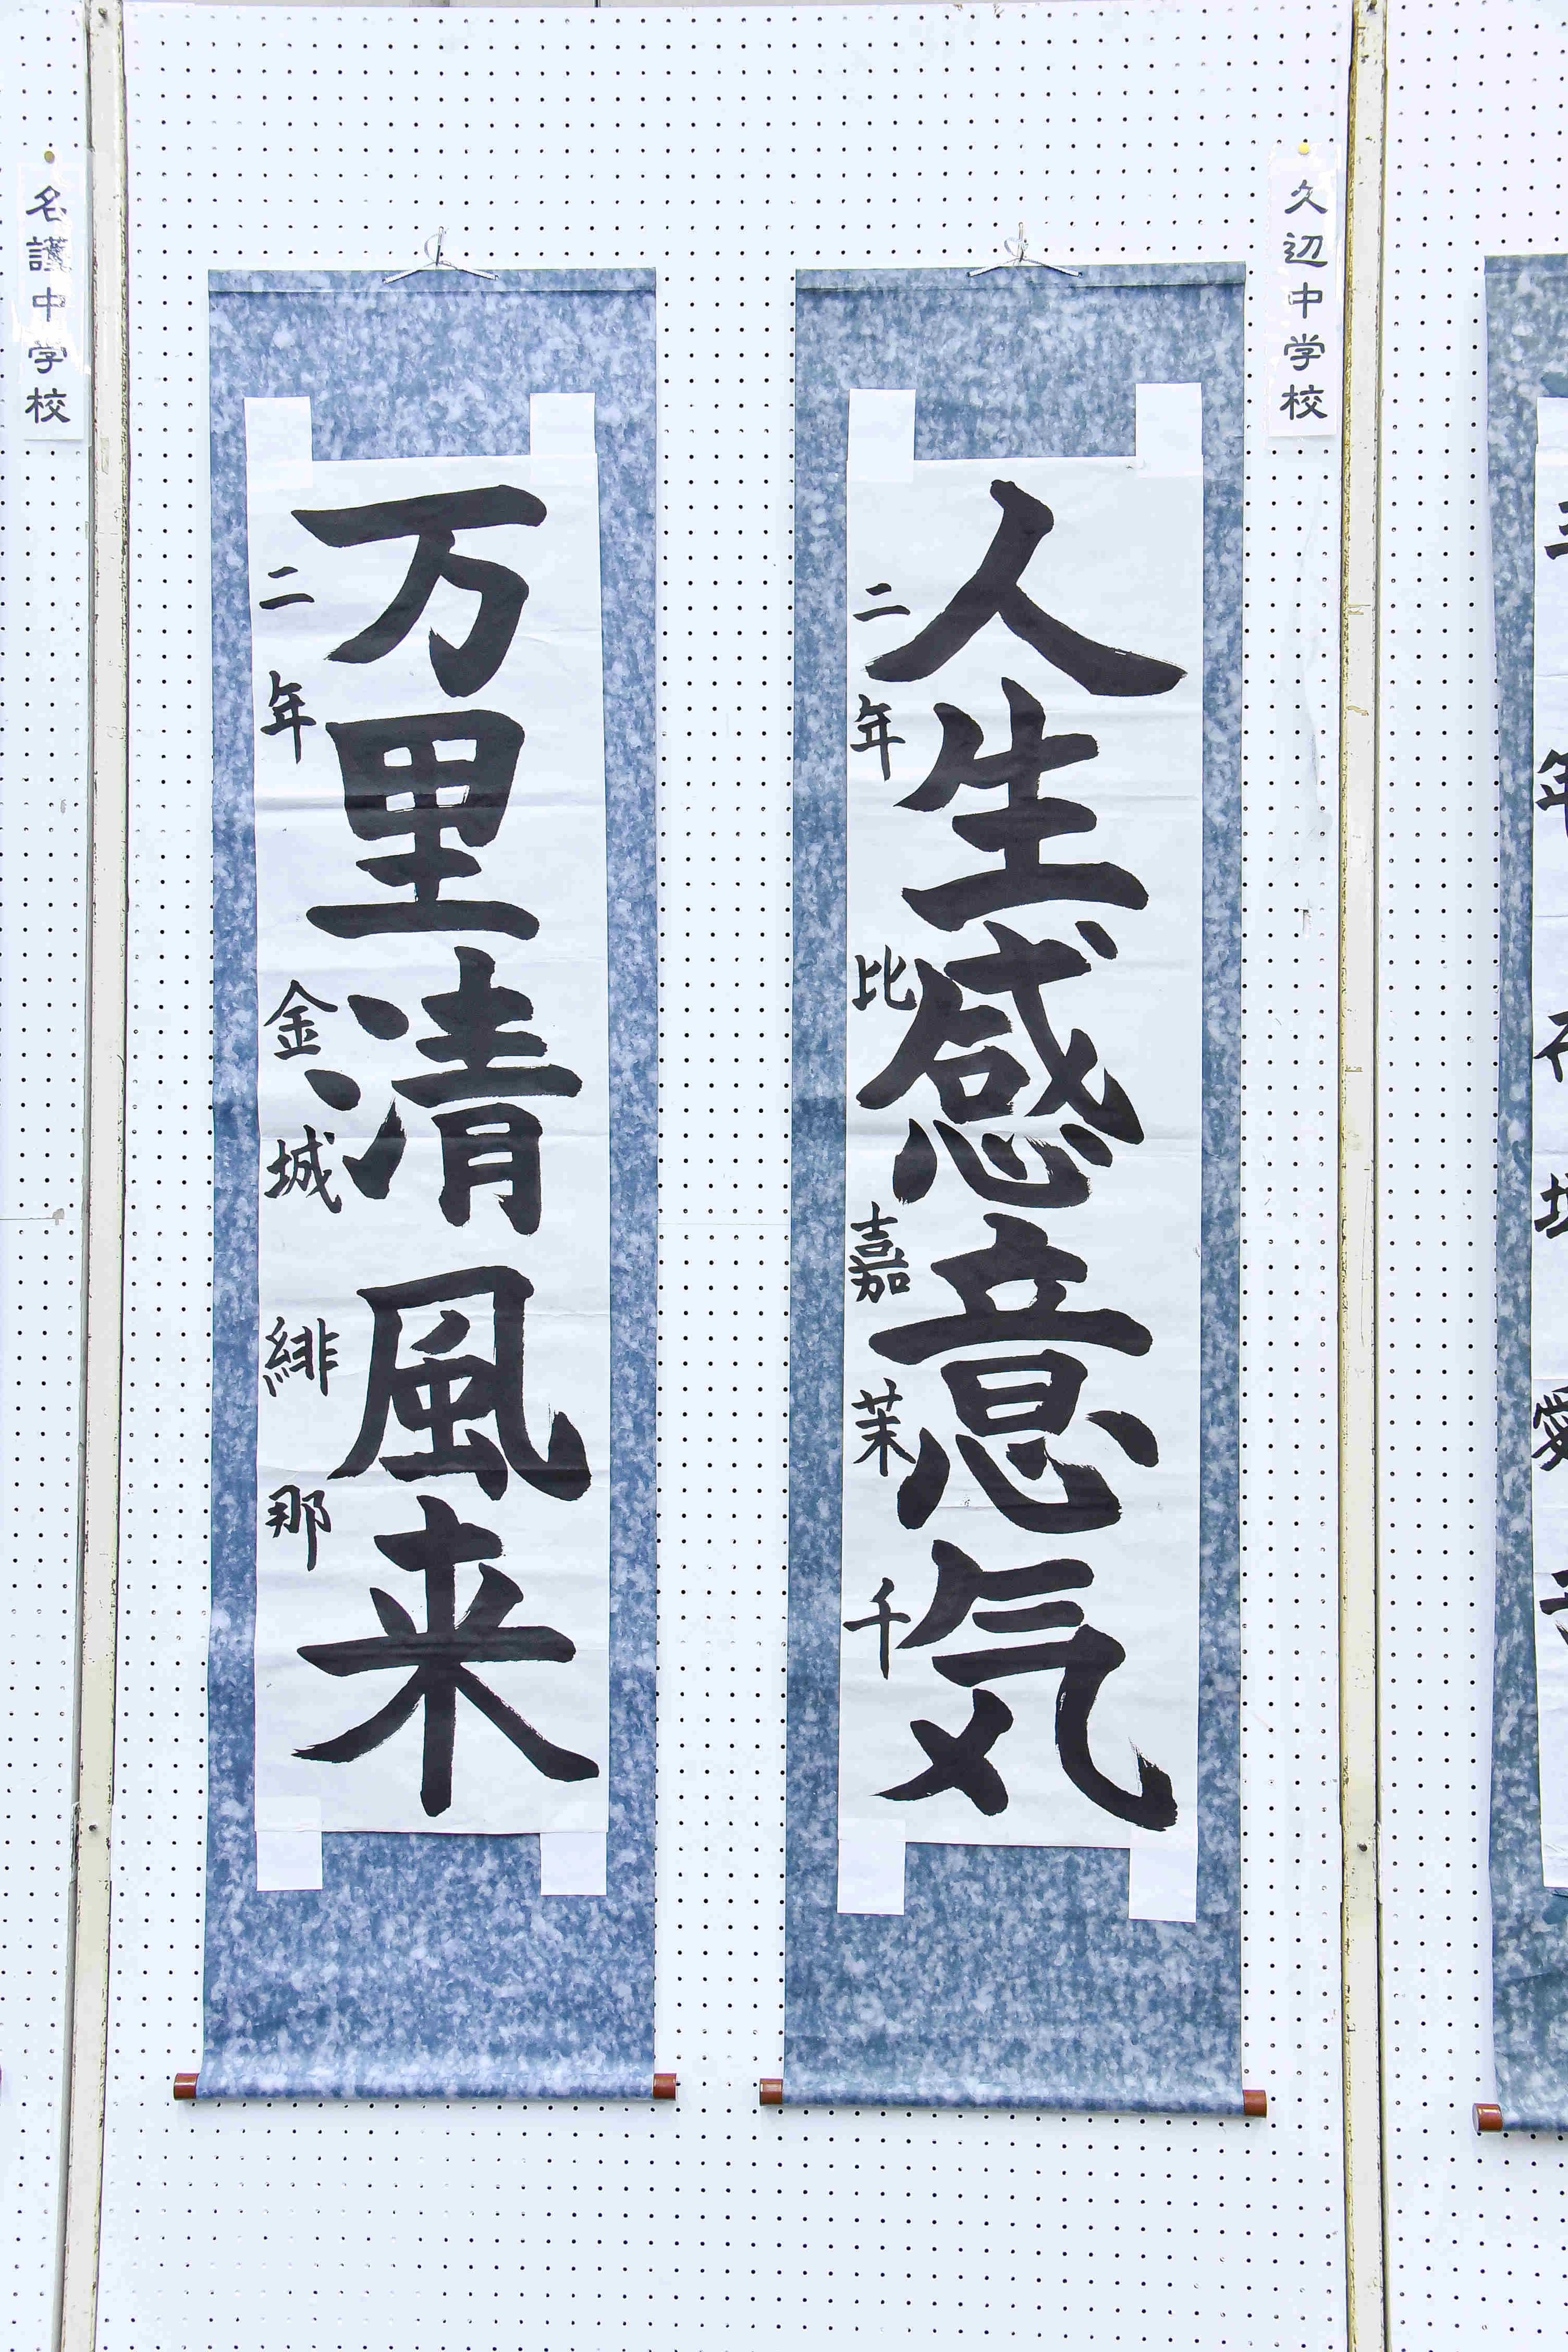 久辺中学校
人生感意気
二年 比嘉茉千
万里清風来
二年 金城緋那
名護中学校